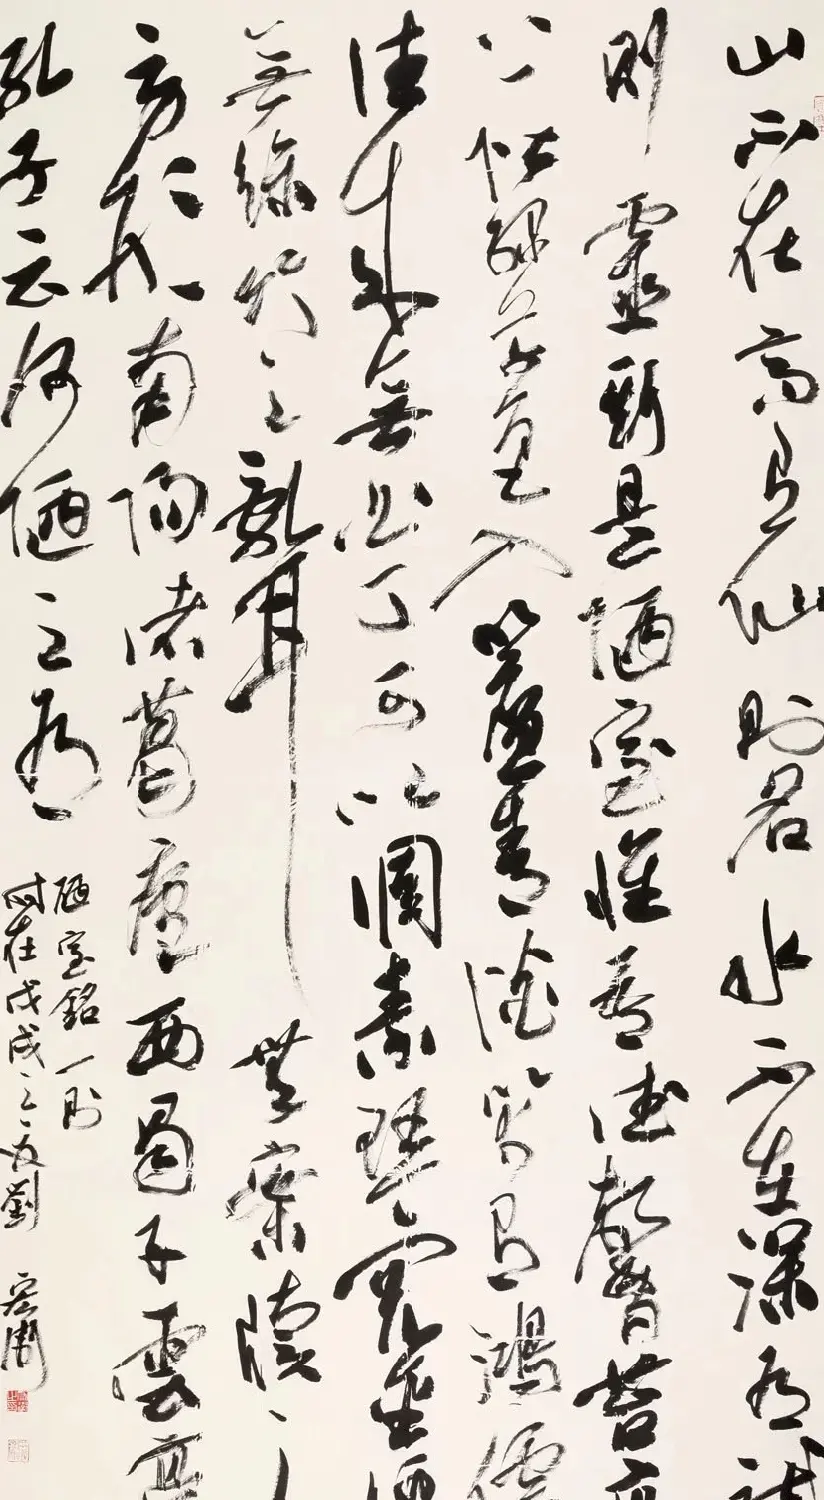 山不在高有仙則名水不在深有
則靈斯是陋室惟吾德馨苔
上階綠草色入簾青談笑有鴻儒
往來無白丁可以調素琴閱金
無絲竹之亂耳無案牘之
勞形南陽諸葛廬西蜀子雲亭
孔子云何陋之有
陋室銘一則
時在戊戌之夏劉